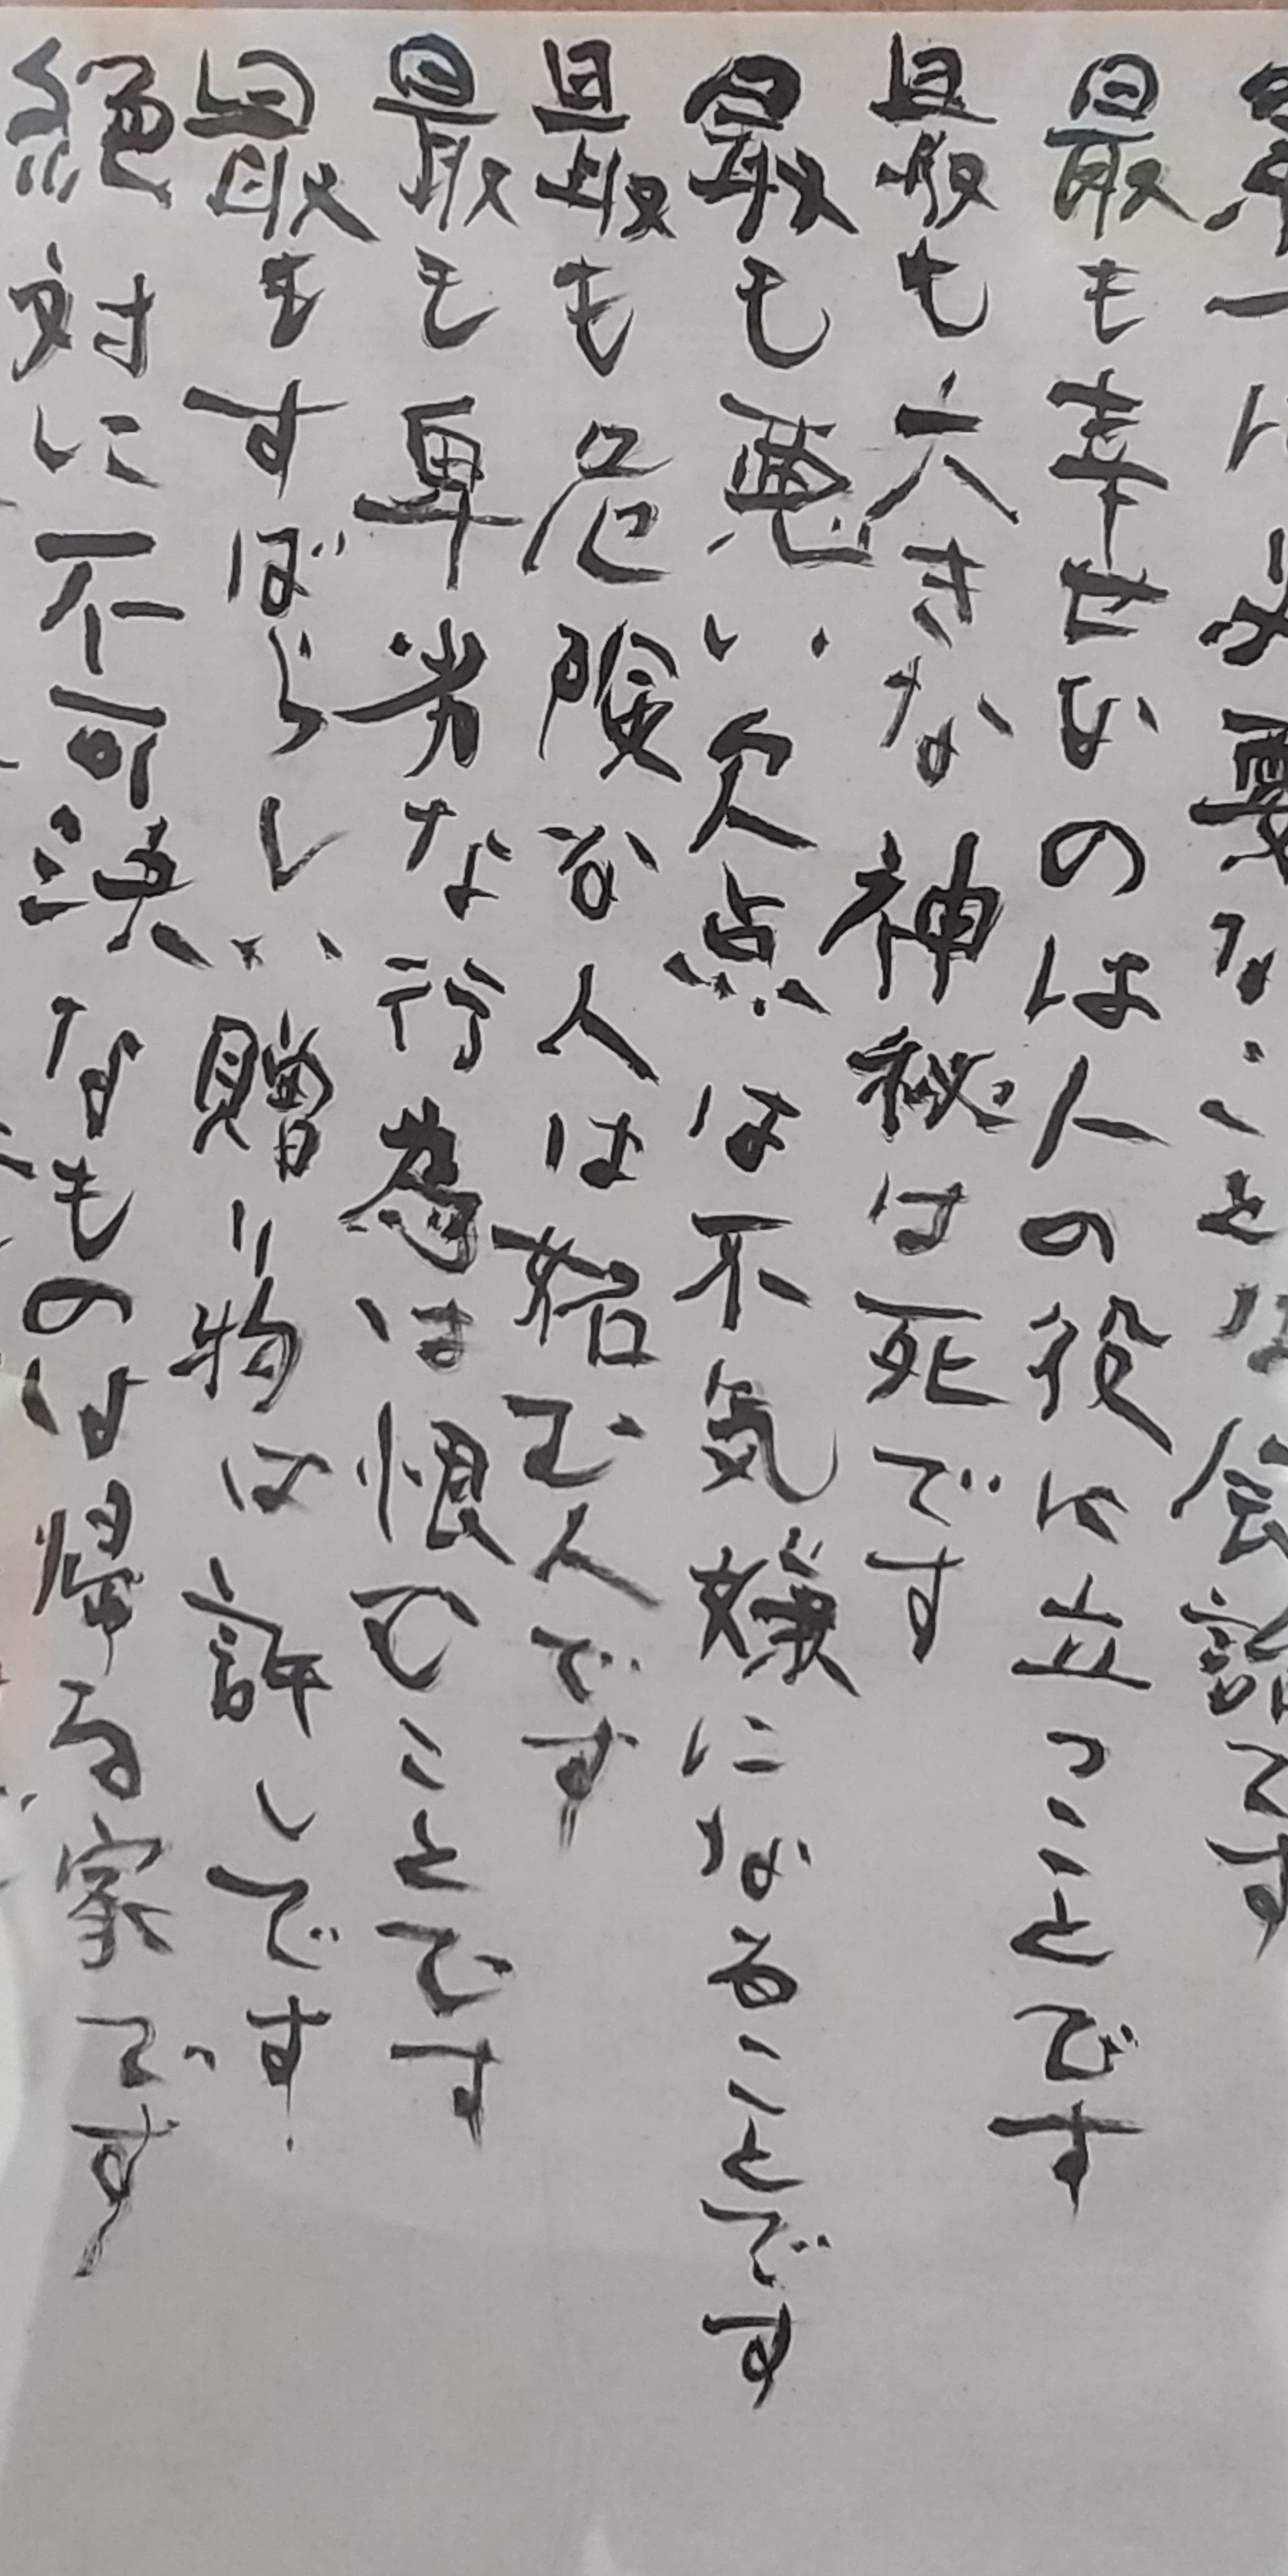 第一に必要なことは会話です
最も幸せなのは人の役に立つことです
最も大きな神秘は死です
最も悪い欠点は不気嫌になることです
最も危険な人は妬む人です
最も卑劣な行為は恨むことです
最もすばらしい贈り物は許しです
絶対に不可決なものは帰る家です